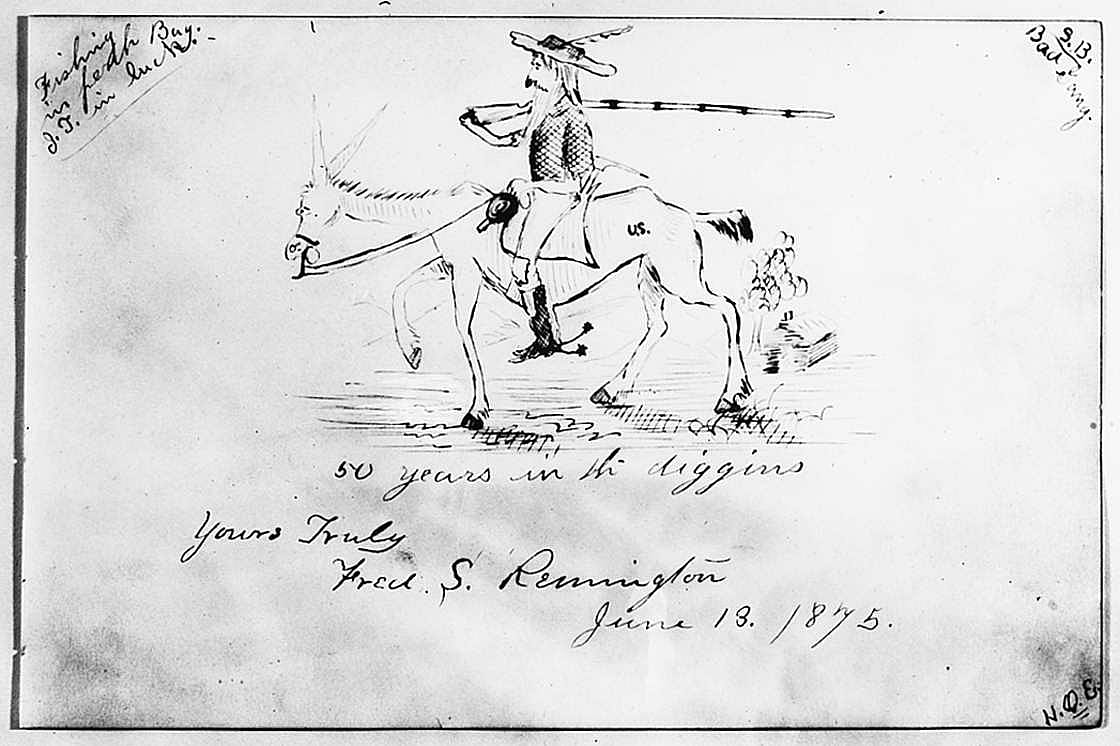 Fishing
in perch Bay.
J. T. in luck.
S. B.
Bad Gang
U.S.
50 years in th diggins
Yours Truly
Fred. S. Remington
June 13. 1875.
N. Q. E.